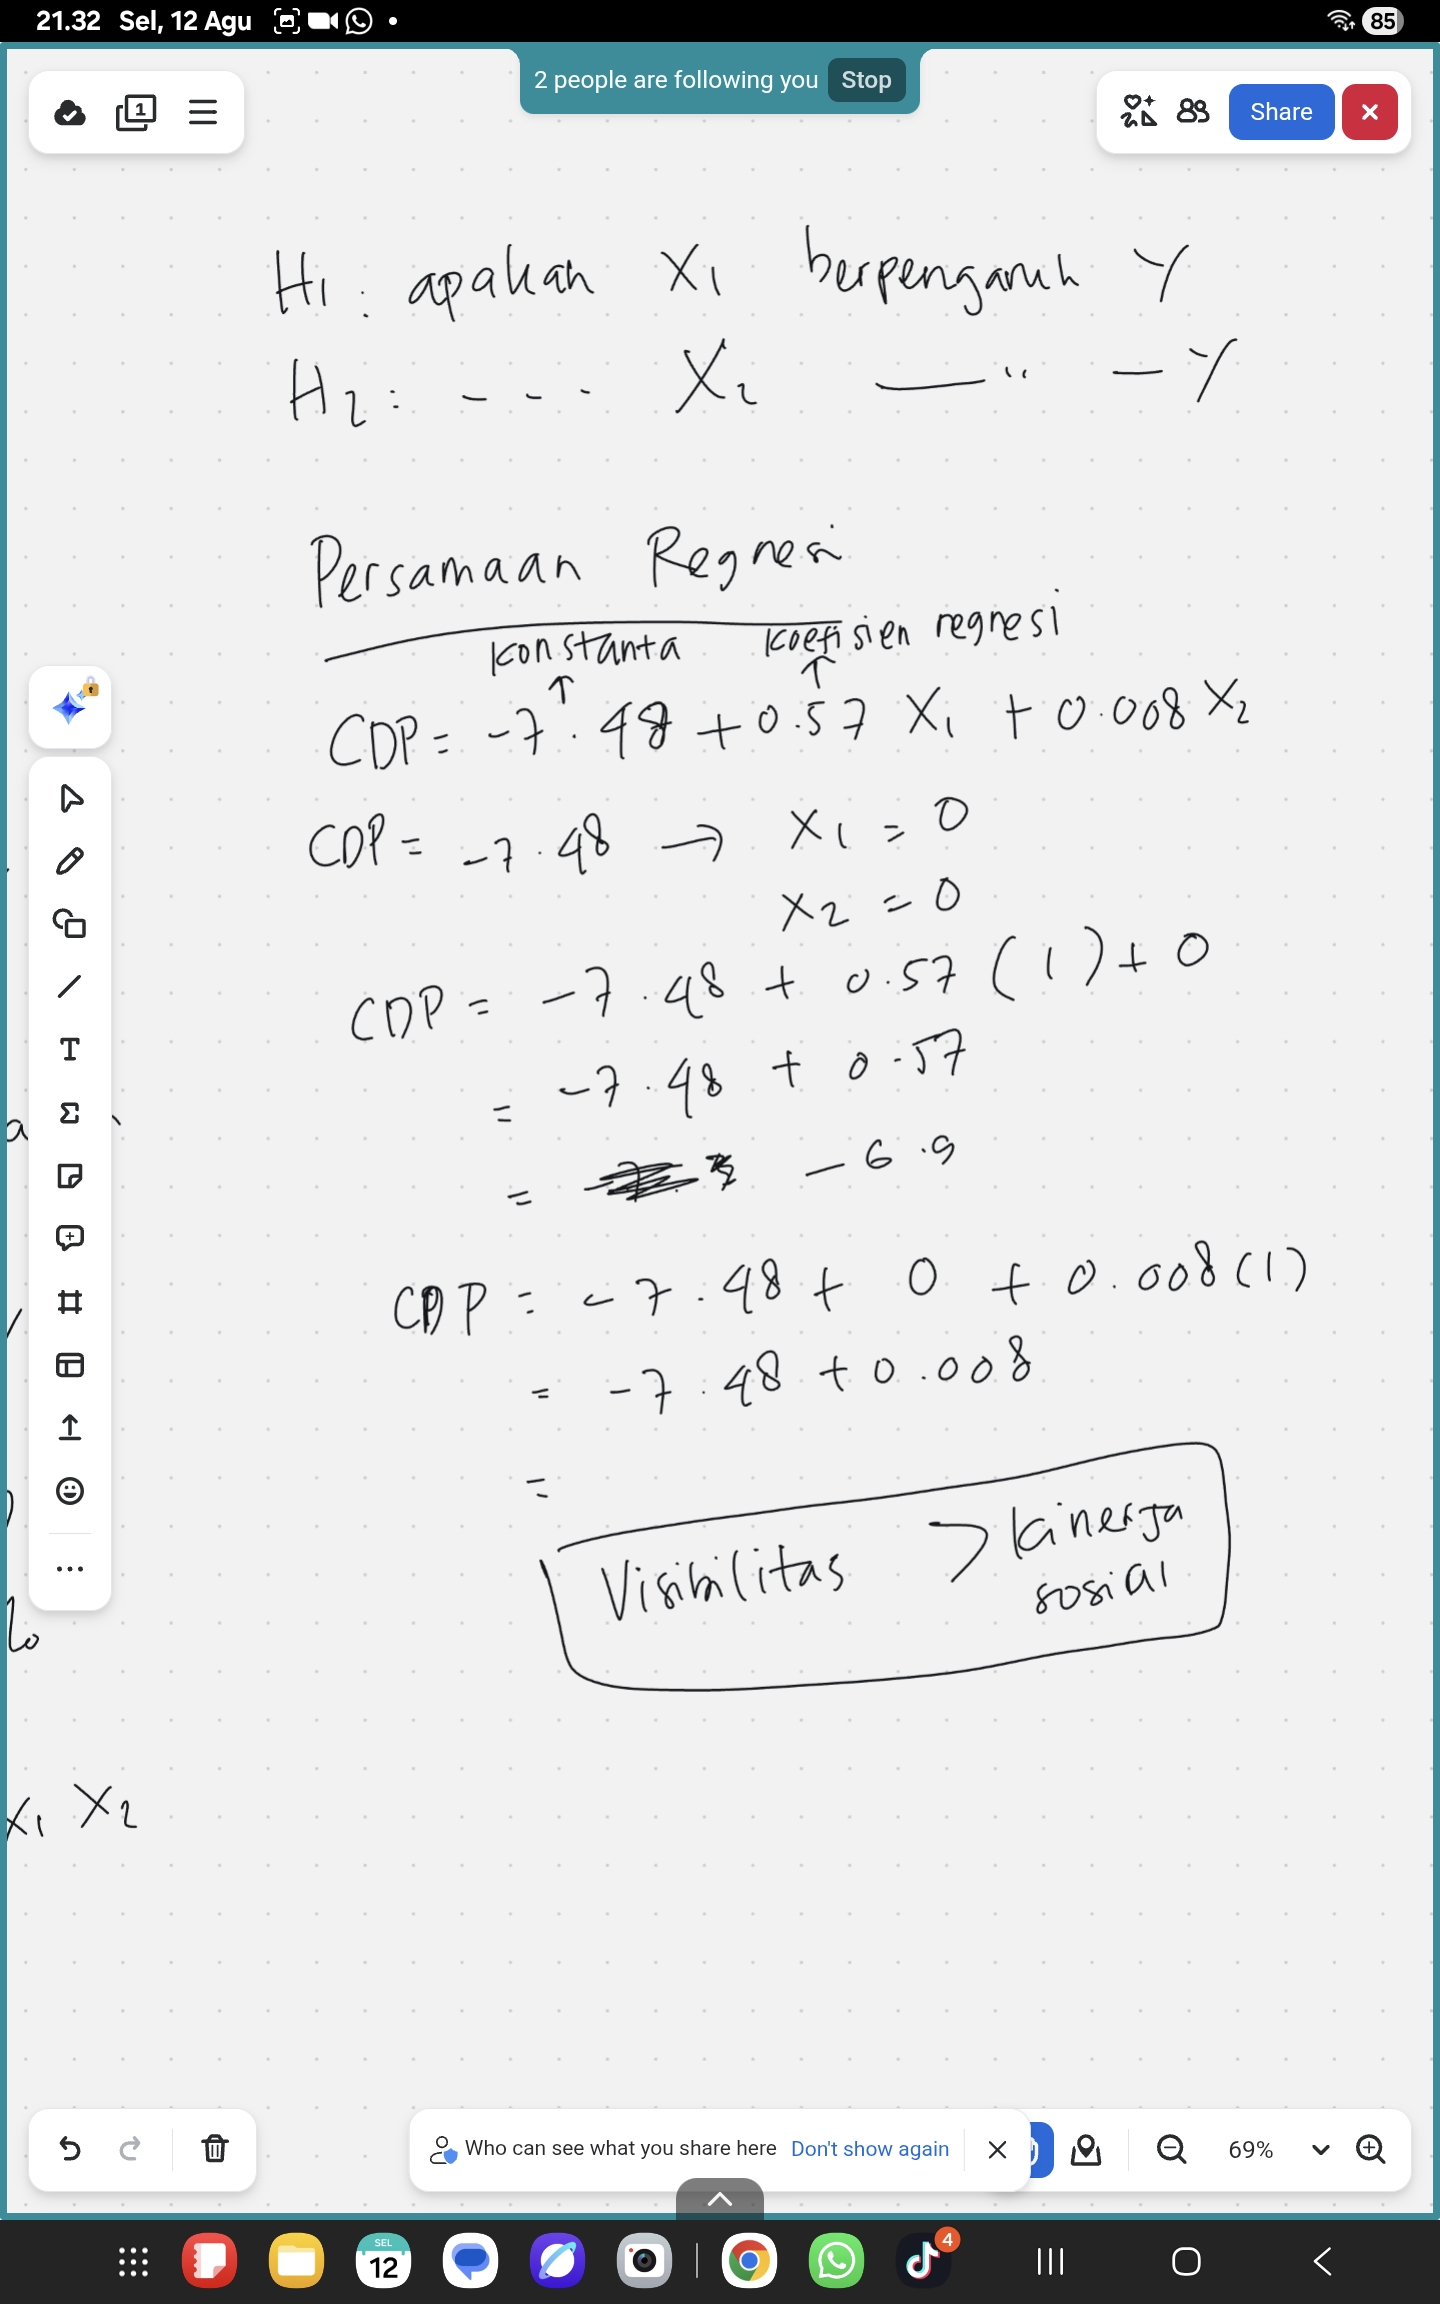 21.32 Sel, 12 Agu
85
2 people are following you Stop
1
Share
H1 : apakah X1 berpengaruh Y
H2 : - - - X2 —— " — Y
Persamaan Regresi
konstanta koefisien regresi
↑ ↑
CDP = -7.48 + 0.57 X1 + 0.008 X2
CDP = -7.48 → X1 = 0
X2 = 0
CDP = -7.48 + 0.57 (1) + 0
= -7.48 + 0.57
= -6.9
CDP = -7.48 + 0 + 0.008 (1)
= -7.48 + 0.008
=
Visibilitas > kinerja
sosial
X1 X2
Who can see what you share here Don't show again
69%
SEL
12
4